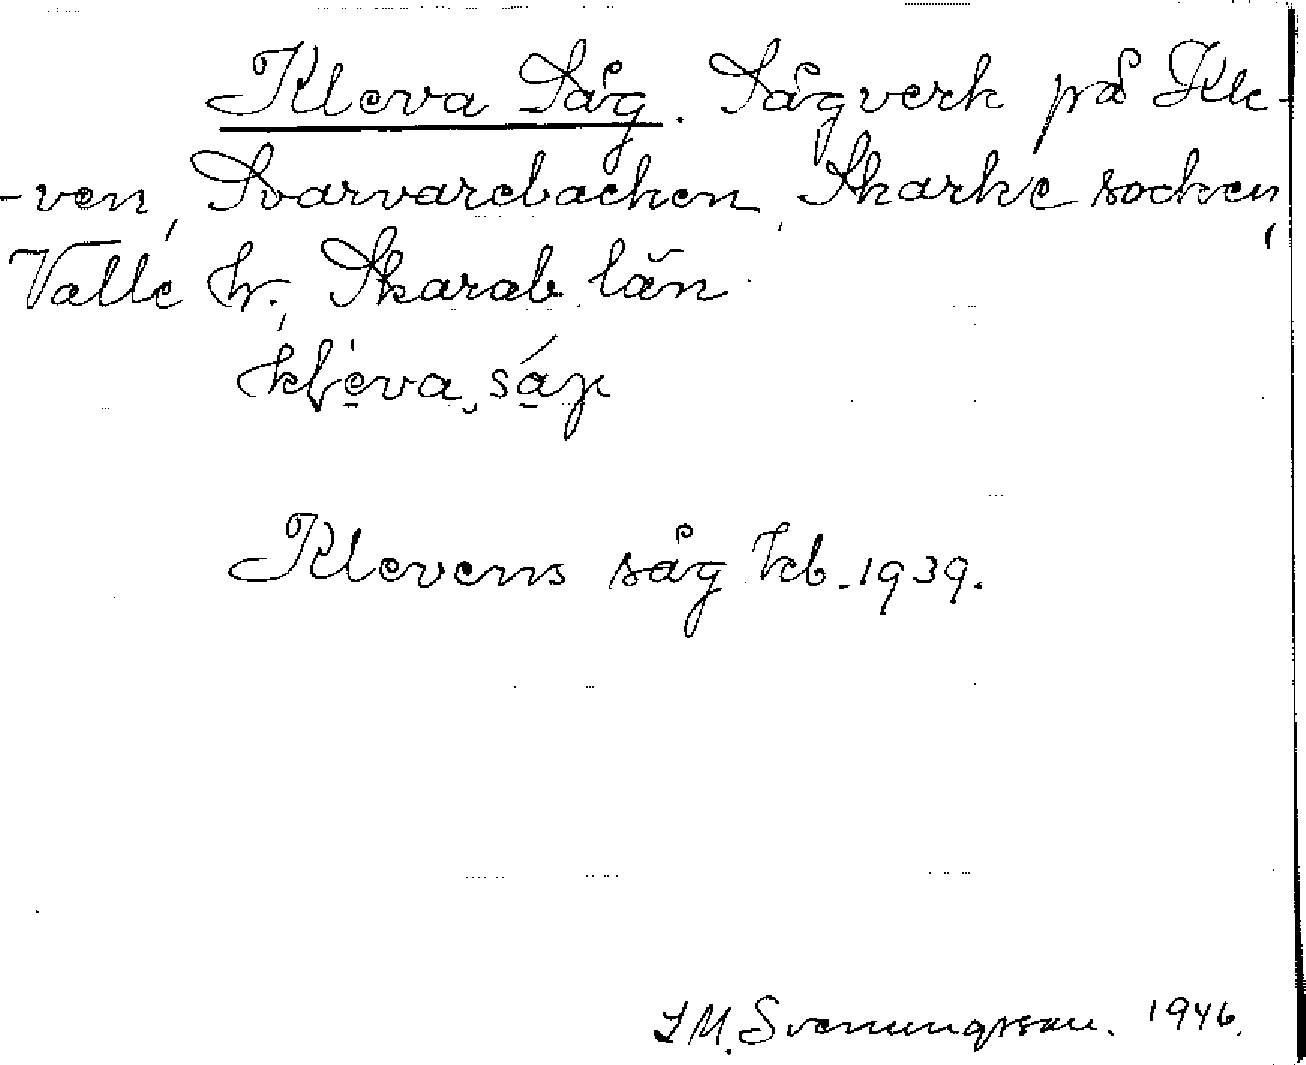 Kleva Såg. Sågverk på Kle-
-ven, Svarvarebacken, Skarke socken,
Valle hr., Skarab. län
Klevens såg kb. 1939.
J M. Svenungsson. 1946.